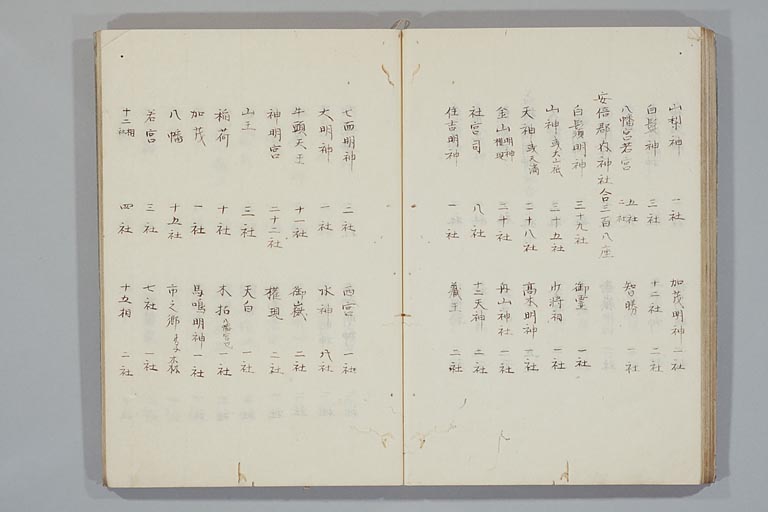 山梨神 一社 加茂明神 一社
白髭神 三社 十二社 二社
八幡宮若宮 五社 二社 智勝 一社
安倍郡内神社合三百八座
白鬚明神 三十九社 御霊 一社
山神 或大山祇 三十五社 少将祠 一社
天神 或天満 二十八社 高木明神 二社
金山明神 権現 三十社 丹山神社 一社
社宮司 八社 十二天神 二社
住吉明神 一社 蔵王 二社
七面明神 二社 西宮 一社
大明神 一社 水神 八社
牛頭天王 十一社 御嶽 二社
神明宮 二十二社 権現 二社
山王 三社 天白 一社
稲荷 十社 木拓 八幡宮 一社
加茂 一社 馬鳴明神 一社
八幡 十五社 市之郷
若宮 三社 七社 一社
十二相 四社 十五相 二社